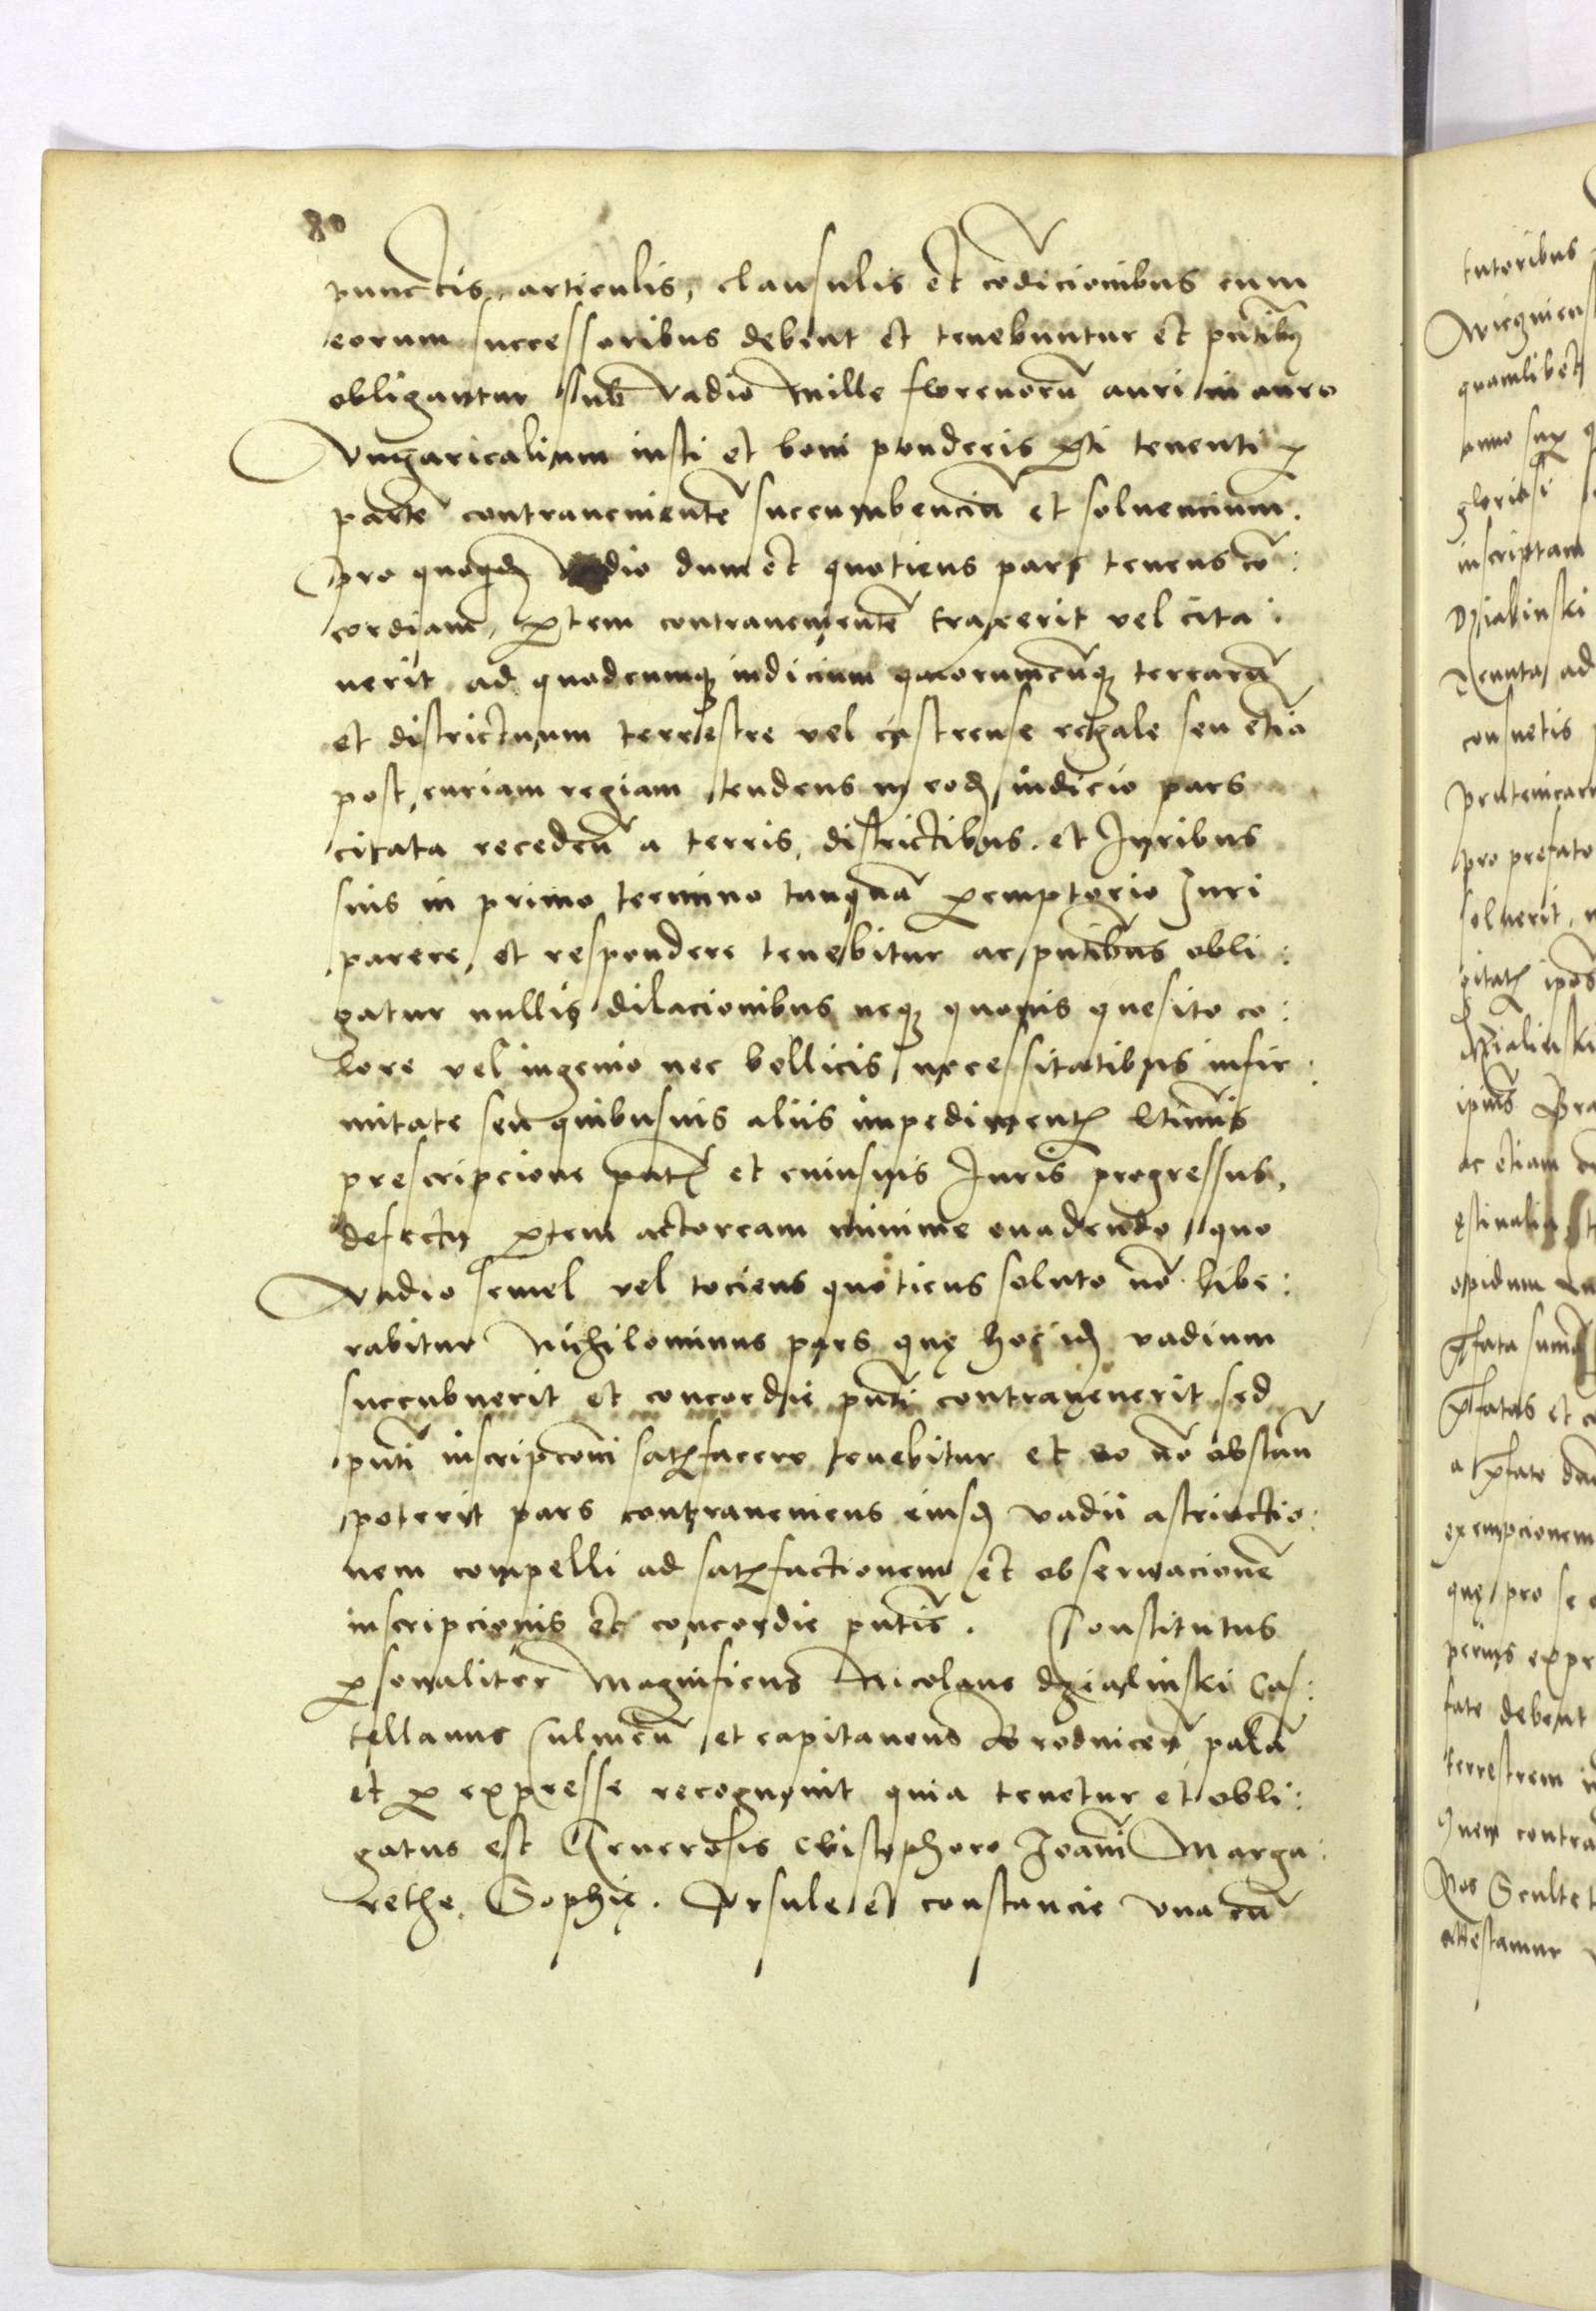 80
punctis, articulis, clausulis et cōdicionibus cum
eorum successoribus debent et tenebuntur et pn̄tibus
obligantur sub vadio mille florenorū auri in auro
Vngaricalium iusti et boni ponderis pti tenenti p
partē contrauenientē succumbenciū et soluencium.
pro quoquidem vadio dum et quotiens pars tenens cō:
cordiam, ptem contrauenientē traxerit vel cita:
uerit ad quodcumque iudicium quorumcūque terrarū
et districtuum terrestre vel castrense regale seu etiā
post curiam regiam, tendens in eodem iudicio pars
citata recedēn a terris, districtibus et Iuribus
suis in primo termino tanquā peremptorio Iuri
parere, et respondere tenebitur ac pn̄tibus obli:
gatur nullis dilacionibus neque quouis quesito co:
lore vel ingenio nec bellicis necessitatibus infir:
mitate seu quibusuis aliis impedimentis ltimis
prescripcione pn̄tis et cuiusuis Iuris progressus,
defectu ptem actoream minime euadendo, quo
vadio semel vel tociens quotiens soluto nō libe:
rabitur Nichilominus pars quę hoc idem vadium
succubuerit et concordie pn̄ti contrauenerit sed
pn̄ti inscripcōni satisfacere tenebitur et eo nō obstān
poterit pars contraueniens eiusdem vadii astrictio:
nem compelli ad satisfactionem et obseruacionē
inscripcionis et concordie pn̄tis. Constitutus
personaliter Magnificus Nicolaus Dzialinski Cas:
tellanus Culmēn et capitaneus Brodnicēn palā
et p expresse recognouit quia tenetur et obli:
gatus est Generosis Cristophoro Ioanni Marga:
rethe, Sophię. Vrsule et constancie vna cū
tutoribus
quamlibet
gloriosi
inscriptam
Dzialinski
ad
consuetis
pro prefato
soluerit
Dzialinski
ac etiam
opidum
a
exempcionem
quę pro se
debent
terrestrem
contra
attestamur